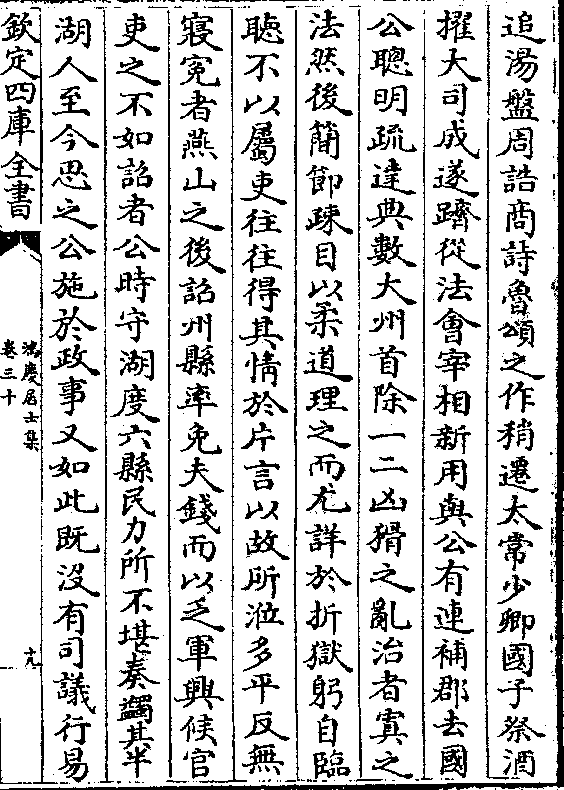 追湯盤周誥商詩魯頌之作稍遷太常少卿國子祭酒
擢大司成遂躋從法會宰相新用與公有連補郡去國
公聰明疏達典數大州首除一二凶猾之亂治者寘之
法然後簡節疎目以柔道理之而尤詳於折獄躬自臨
聽不以屬吏往往得其情於片言以故所涖多平反無
寢冤者燕山之後詔州縣率免夫錢而以乏軍興候官
吏之不如詔者公時守湖度六縣民力所不堪奏蠲其半
湖人至今思之公施於政事又如此既沒有司議行易
欽定四庫全書
鴻慶居士集
卷三十
十九